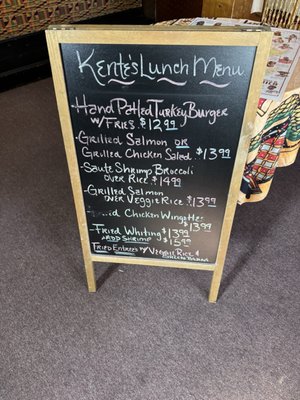 Kente's Lunch Menu
-Hand Patted Turkey Burger
w/Fries $12.99
-Grilled Salmon OR
Grilled Chicken Salad $13.99
-Saute Shrimp Broccoli
over Rice $14.99
-Grilled Salmon
over Veggie Rice $13.99
Chicken Wingettes
$13.99
-Fried Whiting $13.99
ADD Shrimp $15.99
Fried Entrees w/ Veggie Rice &